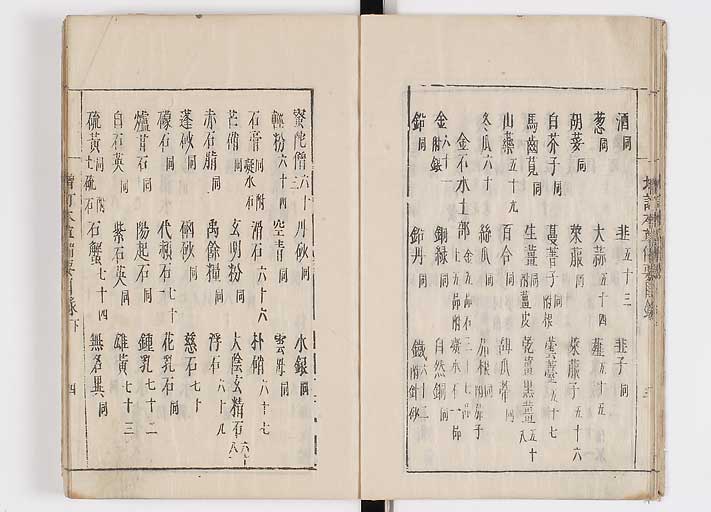 酒同 韭五十三 韭子同
葱同 大蒜五十四 薤五十五
胡荽同 萊菔同 萊菔子五十六
白芥子同 蔓菁子同附根 蕓薹五十七
馬齒莧同 生薑同附薑皮 乾薑黑薑五十八
山藥五十九 百合同 壺瓜蒂同
冬瓜六十 絲瓜同 茄根同附茄子
金石水土部
金六十一附銀 銅綠同 自然銅同
鉛同 鉛丹同 鐵六十二附針砂
增訂本草備要目錄
三
蜜陀僧六十三 丹砂同 水銀同
輕粉六十四 空青同 雲母同
石膏同附凝水石 滑石六十六 朴硝六十七
芒硝同 玄明粉同 大陰玄精石六十八
赤石脂同 禹餘糧同 浮石六十九
蓬砂同 硇砂同 慈石七十
礞石同 代赭石七十一 花乳石同
爐甘石同 陽起石同 鍾乳七十二
白石英同 紫石英同 雄黃七十三
硫黃同附土硫石 石蟹七十四 無名異同
增訂本草備要目錄下
四